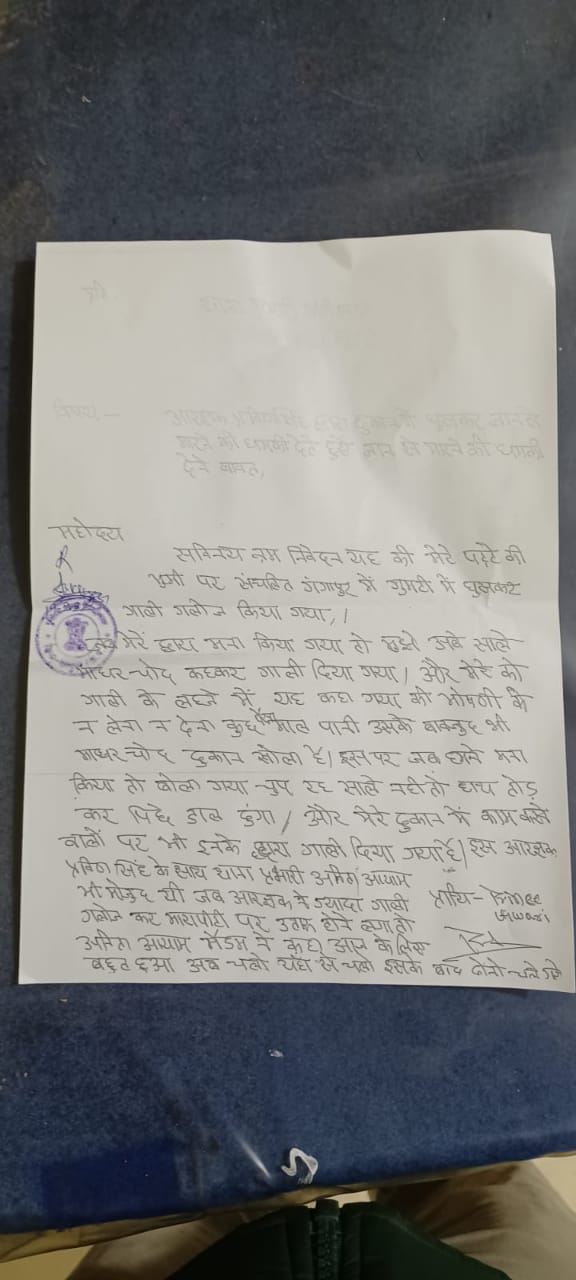 प्रति
विषय:—
आरक्षक प्रविण सिंह द्वारा दुकान में घुसकर जान से
मारने की धमकी देते हुए जान से मारने की धमकी
देने बाबत,
महोदय
सविनय नम्र निवेदन यह की मेरे पट्टे की
भुमी पर संचालित गंगापुर में गुमटी में घुसकर
गाली गलौज किया गया,।
जब मेरें द्वारा मना किया गया तो मुझे अबे साले
माधर चोद कहकर गाली दिया गया। और मेरे को
गाली के लहजे में यह कहा गया की भोषणी के
न लेना न देना कुछ माल पानी उसके बावजुद भी
माधर चोद दुकान खोला है। इस पर जब मैंने मना
किया तो बोला गया चुप रह साले नही तो हाथ तोड़
कर पिछे डाल दुंगा। और मेरे दुकान में काम करने
वालों पर भी इनके द्वारा गाली दिया गया है। इस आरक्षक
प्रविण सिंह के साथ थाना प्रभारी अनिता आयाम
भी मोजुद थी जब आरक्षक ने ज्यादा गाली
प्रार्थि - Prince
गलौज कर मारापीटी पर उतारू होने लगा तो
अनिता आयाम मेडम ने कहा आज के लिए
बहुत हुआ अब चलो यहां से चलो इसके बाद दोनो चले गये